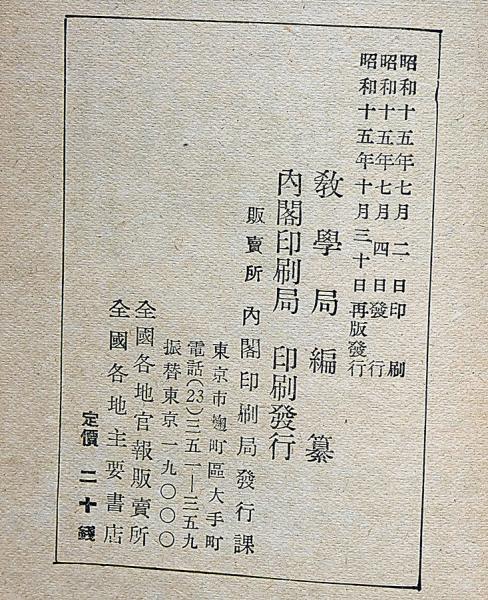 昭和十五年七月二日印刷
昭和十五年七月四日發行
昭和十五年十月三十日再版發行
敎學局編纂
內閣印刷局印刷發行
販賣所 內閣印刷局發行課
東京市麹町區大手町
電話(23)三五一—三五九
振替東京一九〇〇〇
全國各地官報販賣所
全國各地主要書店
定價 二十錢